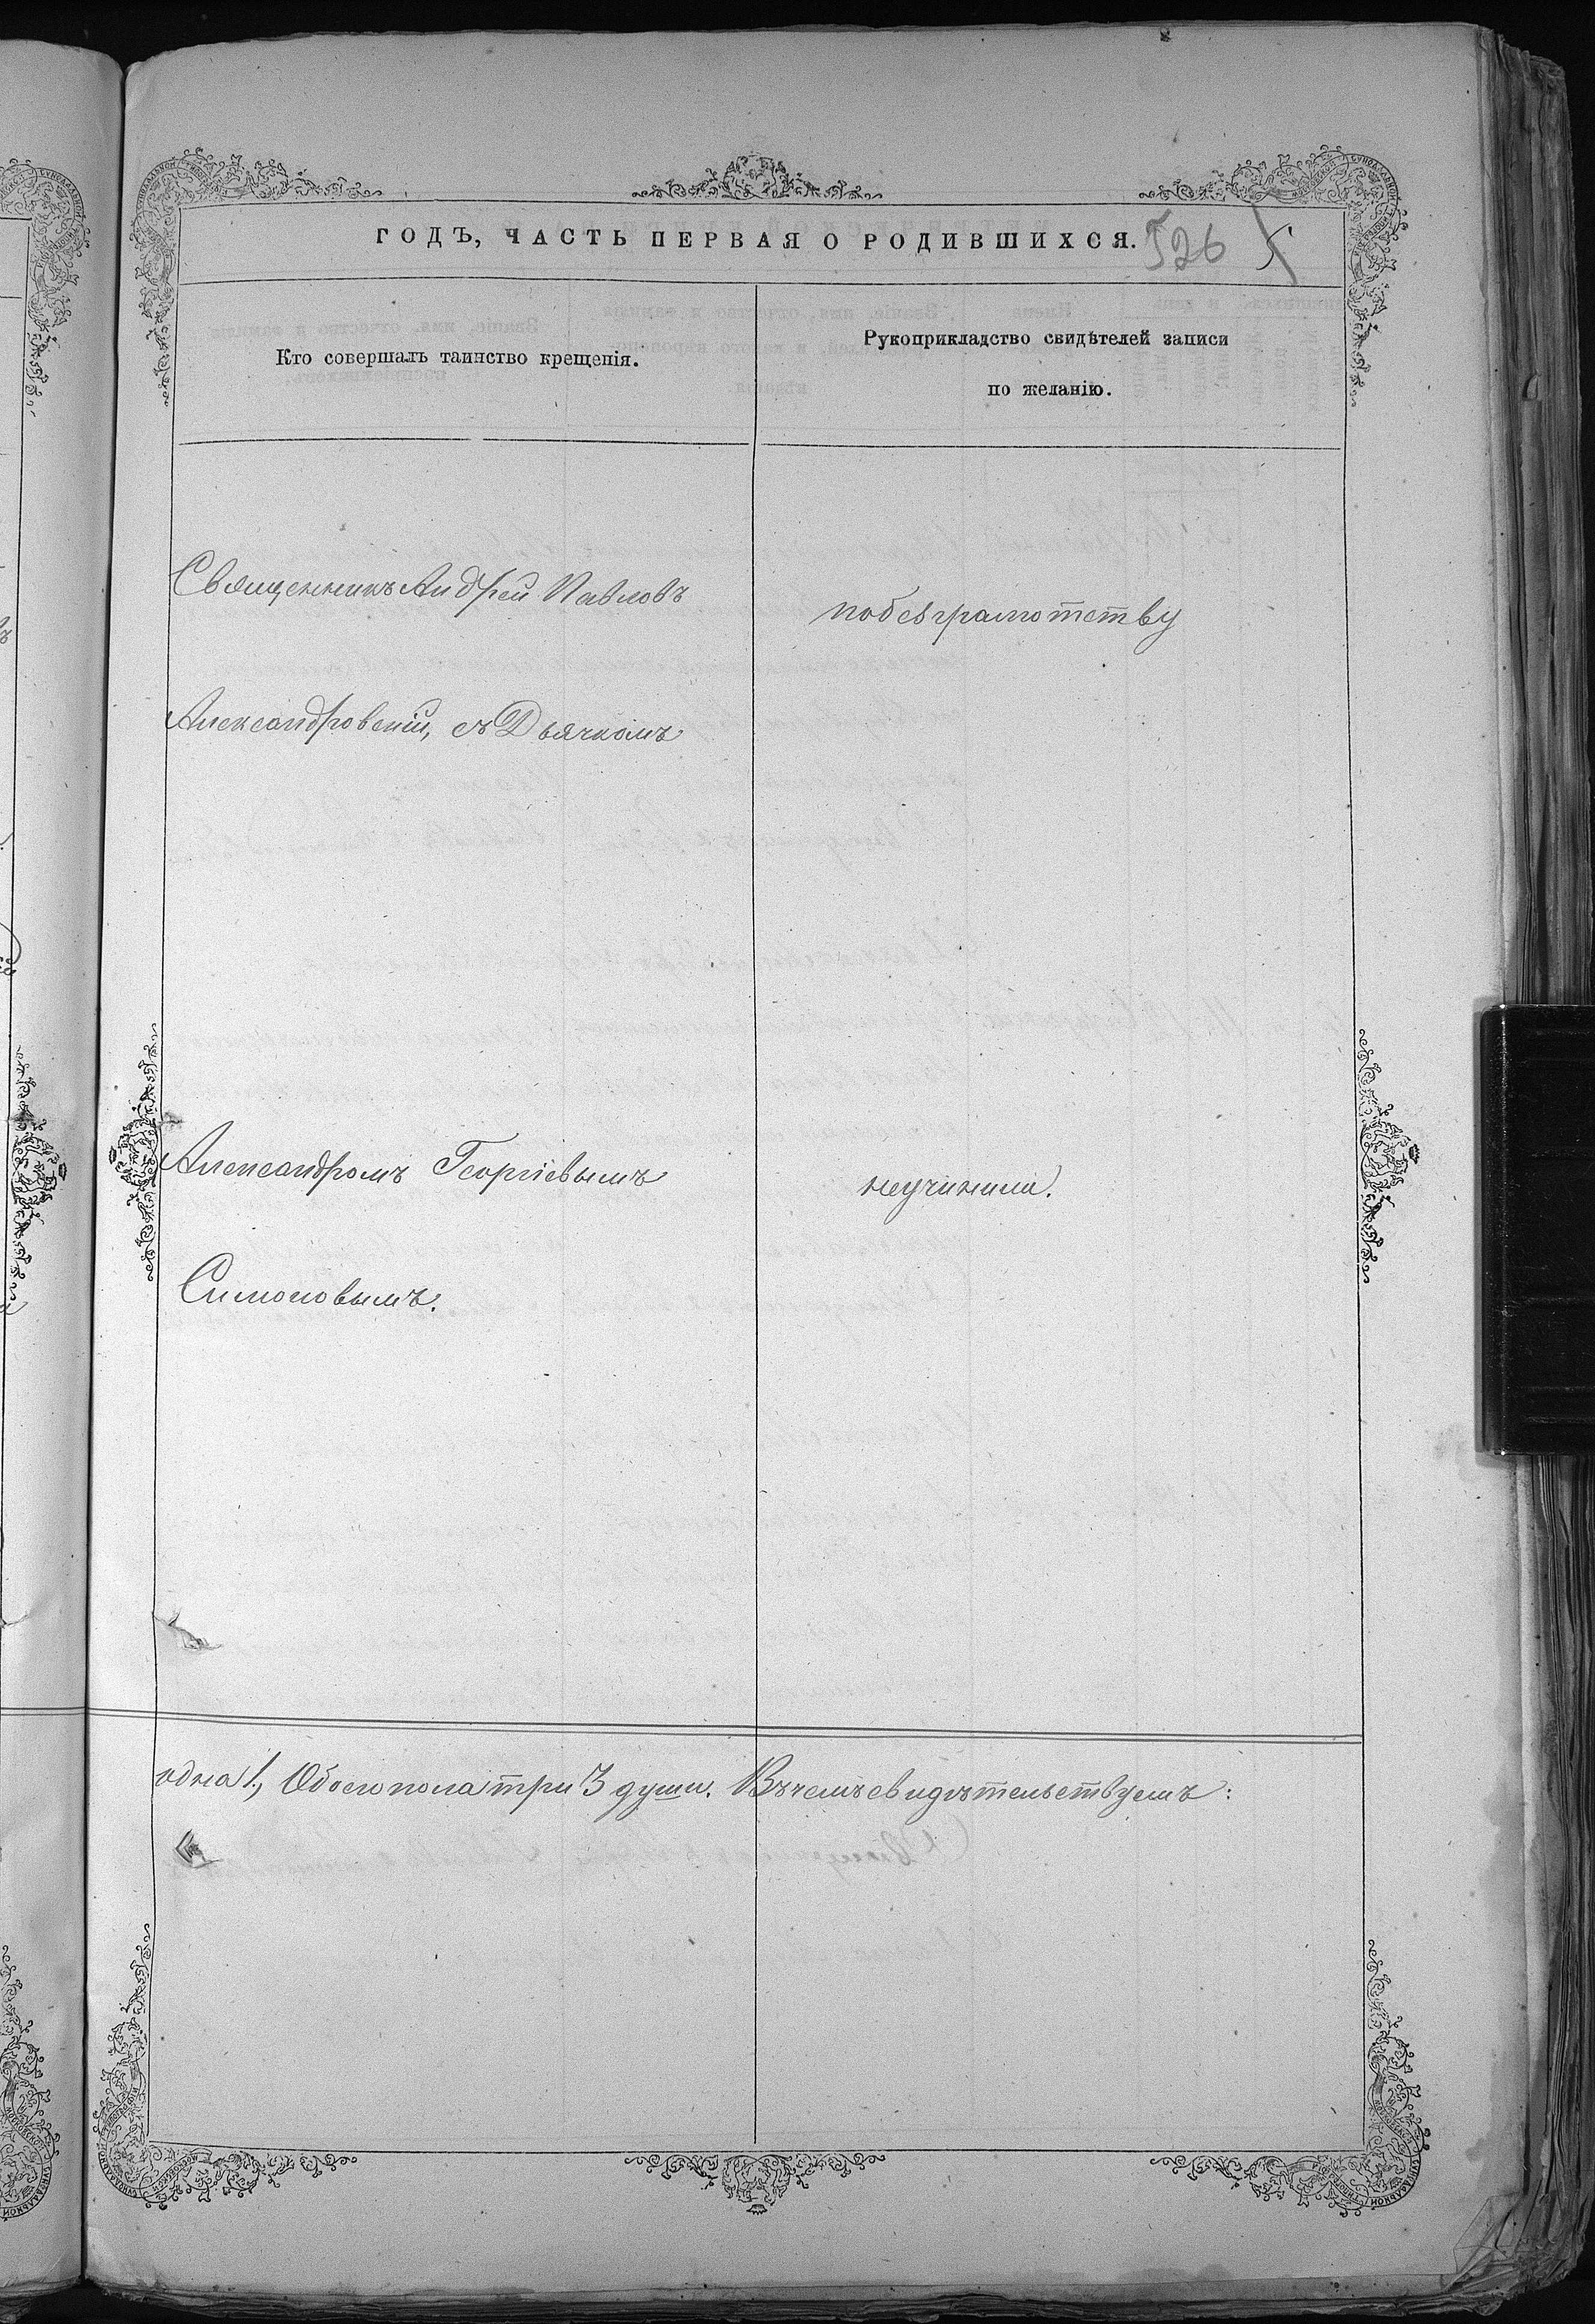 ГОДЪ, ЧАСТЬ ПЕРВАЯ О РОДИВШИХСЯ.
526
5
Кто совершалъ таинство крещенія.
Рукоприкладство свидѣтелей записи
по желанію.
Священникъ Андрей Павловъ
Александровскій, съ Дьячкомъ
Александромъ Георгіевымъ
Симоновымъ.
побезграмотству
неучинили.
одна 1., Обоего пола три 3 души. Въ чемъ свидѣтельствуемъ: